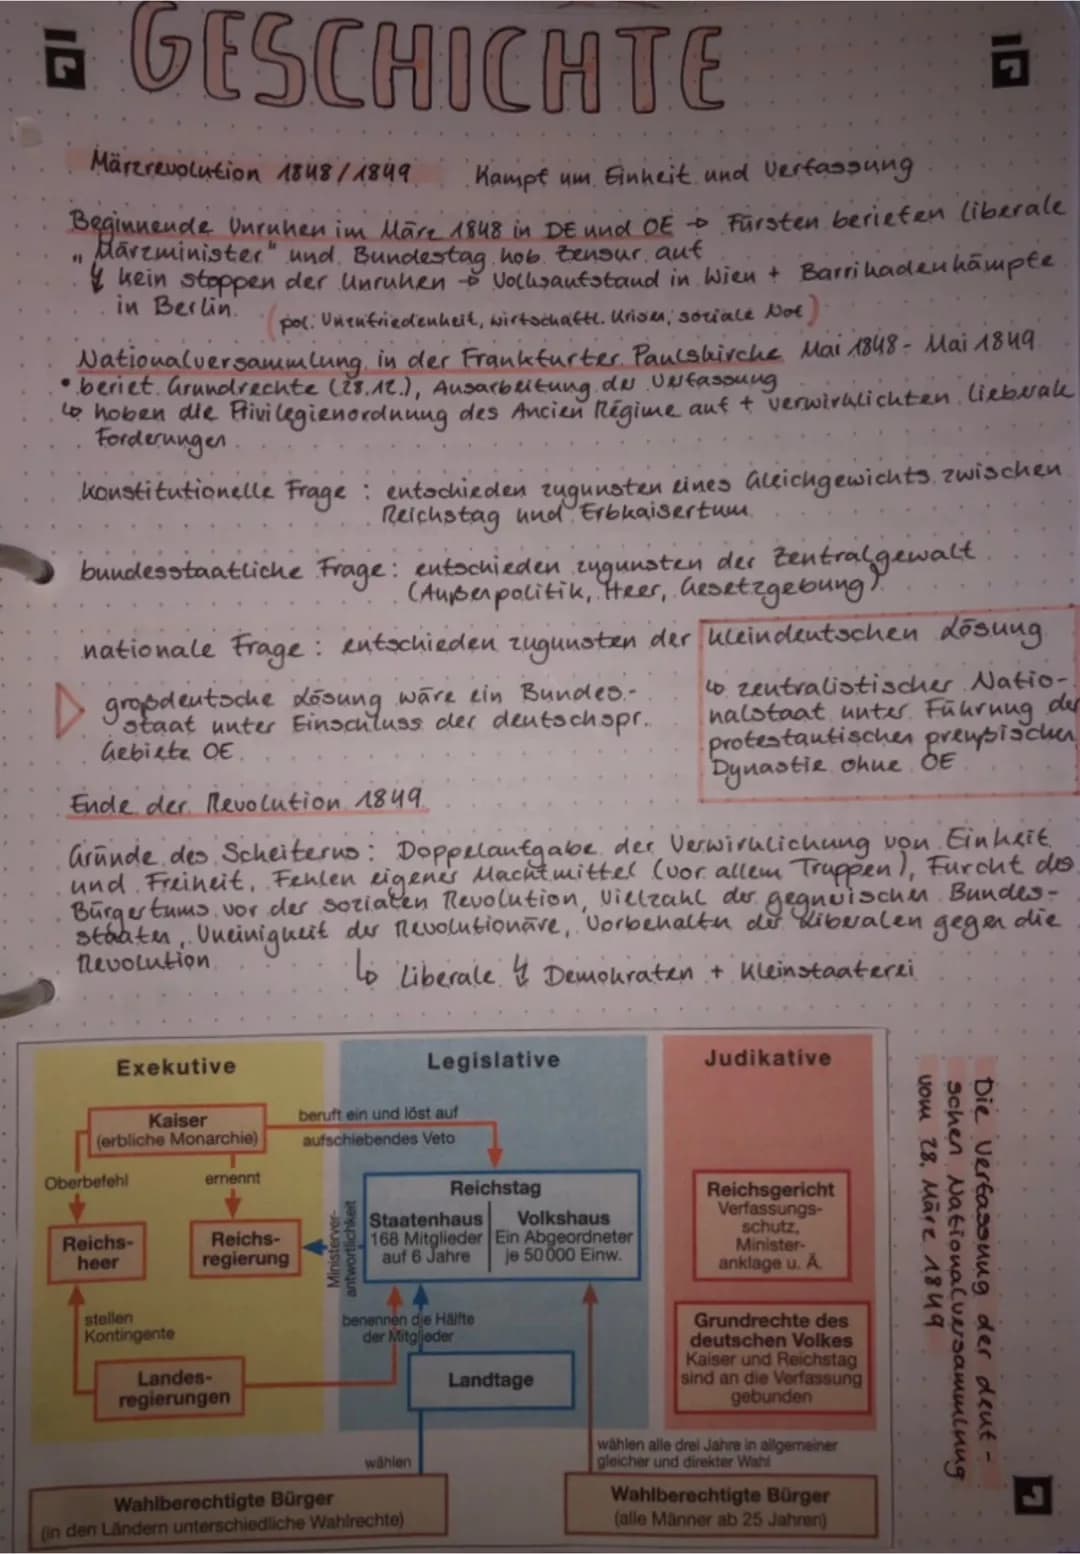 GESCHICHTE
Märzrevolution 1848/1849 Kampf um Einheit und Verfassung
Beginnende Unruhen im März 1848 in DE und OE → Fürsten berieten liberale
„Märzminister" und Bundestag hob Zensur auf
↯ kein stoppen der Unruhen → Volksaufstand in Wien + Barrikadenkämpfe
in Berlin. (pol. Unzufriedenheit, wirtschaftl. Krisen, soziale Not)
Nationalversammlung in der Frankfurter Paulskirche Mai 1848 - Mai 1849
• beriet Grundrechte (28.12.), Ausarbeitung der Verfassung
↳ hoben die Privilegienordnung des Ancien Régime auf + verwirklichten lieberale
Forderungen
konstitutionelle Frage : entschieden zugunsten eines Gleichgewichts zwischen
Reichstag und Erbkaisertum
bundesstaatliche Frage : entschieden zugunsten der Zentralgewalt
(Außenpolitik, Heer, Gesetzgebung)
nationale Frage : entschieden zugunsten der kleindeutschen Lösung
großdeutsche Lösung wäre ein Bundes-
staat unter Einschluss der deutschspr.
Gebiete OE
↳ zentralistischer Natio-
nalstaat unter Führung der
protestantischen preußischen
Dynastie ohne OE
Ende der Revolution 1849
Gründe des Scheiterns : Doppelaufgabe der Verwirklichung von Einheit
und Freiheit, Fehlen eigener Machtmittel (vor allem Truppen), Furcht des
Bürgertums vor der sozialen Revolution, Vielzahl der gegnerischen Bundes-
staaten, Uneinigkeit der Revolutionäre, Vorbehalte der Liberalen gegen die
Revolution
↳ Liberale ↯ Demokraten + Kleinstaaterei
Exekutive
Legislative
Judikative
Kaiser
(erbliche Monarchie)
beruft ein und löst auf
aufschiebendes Veto
Oberbefehl
ernennt
Reichs-
heer
Reichs-
regierung
Ministerver-
antwortlichkeit
Reichstag
Staatenhaus
168 Mitglieder
auf 6 Jahre
Volkshaus
Ein Abgeordneter
je 50000 Einw.
Reichsgericht
Verfassungs-
schutz,
Minister-
anklage u. Ä.
stellen
Kontingente
benennen die Hälfte
der Mitglieder
Landes-
regierungen
Landtage
Grundrechte des
deutschen Volkes
Kaiser und Reichstag
sind an die Verfassung
gebunden
wählen
wählen alle drei Jahre in allgemeiner
gleicher und direkter Wahl
Wahlberechtigte Bürger
(in den Ländern unterschiedliche Wahlrechte)
Wahlberechtigte Bürger
(alle Männer ab 25 Jahren)
Die Verfassung der deut-
schen Nationalversammlung
vom 28. März 1849